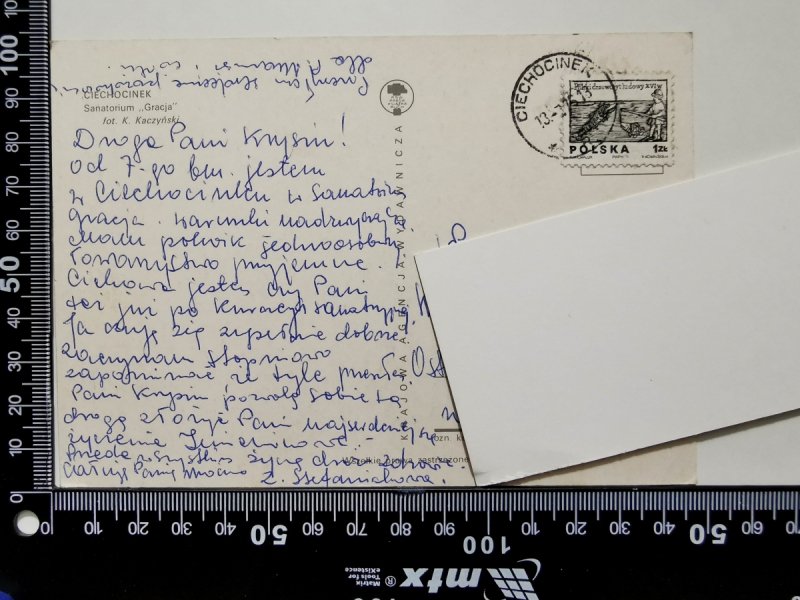 CIECHOCINEK
Sanatorium „Gracja"
fot. K. Kaczyński
Przesyłam serdeczne pozdrowienia
dla P. i córki
Droga Pani Krysiu!
Od 7-go bm. jestem
w Ciechocinku w Sanator.
Gracja. Warunki nadzwyczaj.
Mam pokoik jednoosobowy
Towarzystwo przyjemne.
Ciekawa jestem czy Pani
też już po kuracji sanatoryj.
Ja czuję się zupełnie dobrze
zaczynam stopniowo
zapominać że tyle
Pani Krysiu pozwolę sobie tą
drogą złożyć Pani najserdeczniejsze
życzenia Imieninowe.-
Przede wszystkim życzę dużo zdrowia.
Całuję Panią mocno
KRAJOWA AGENCJA WYDAWNICZA
CIECHOCINEK
POLSKA
1ZŁ
Ost
Wszelkie prawa zastrzeżone
100 90 80 70 60 50 40 30 20 10 0
0 10 20 30 40 50 60 70 80 90 100 10 20 30 40 50 60 70
mtx
Matrix
for Tools
eXistence